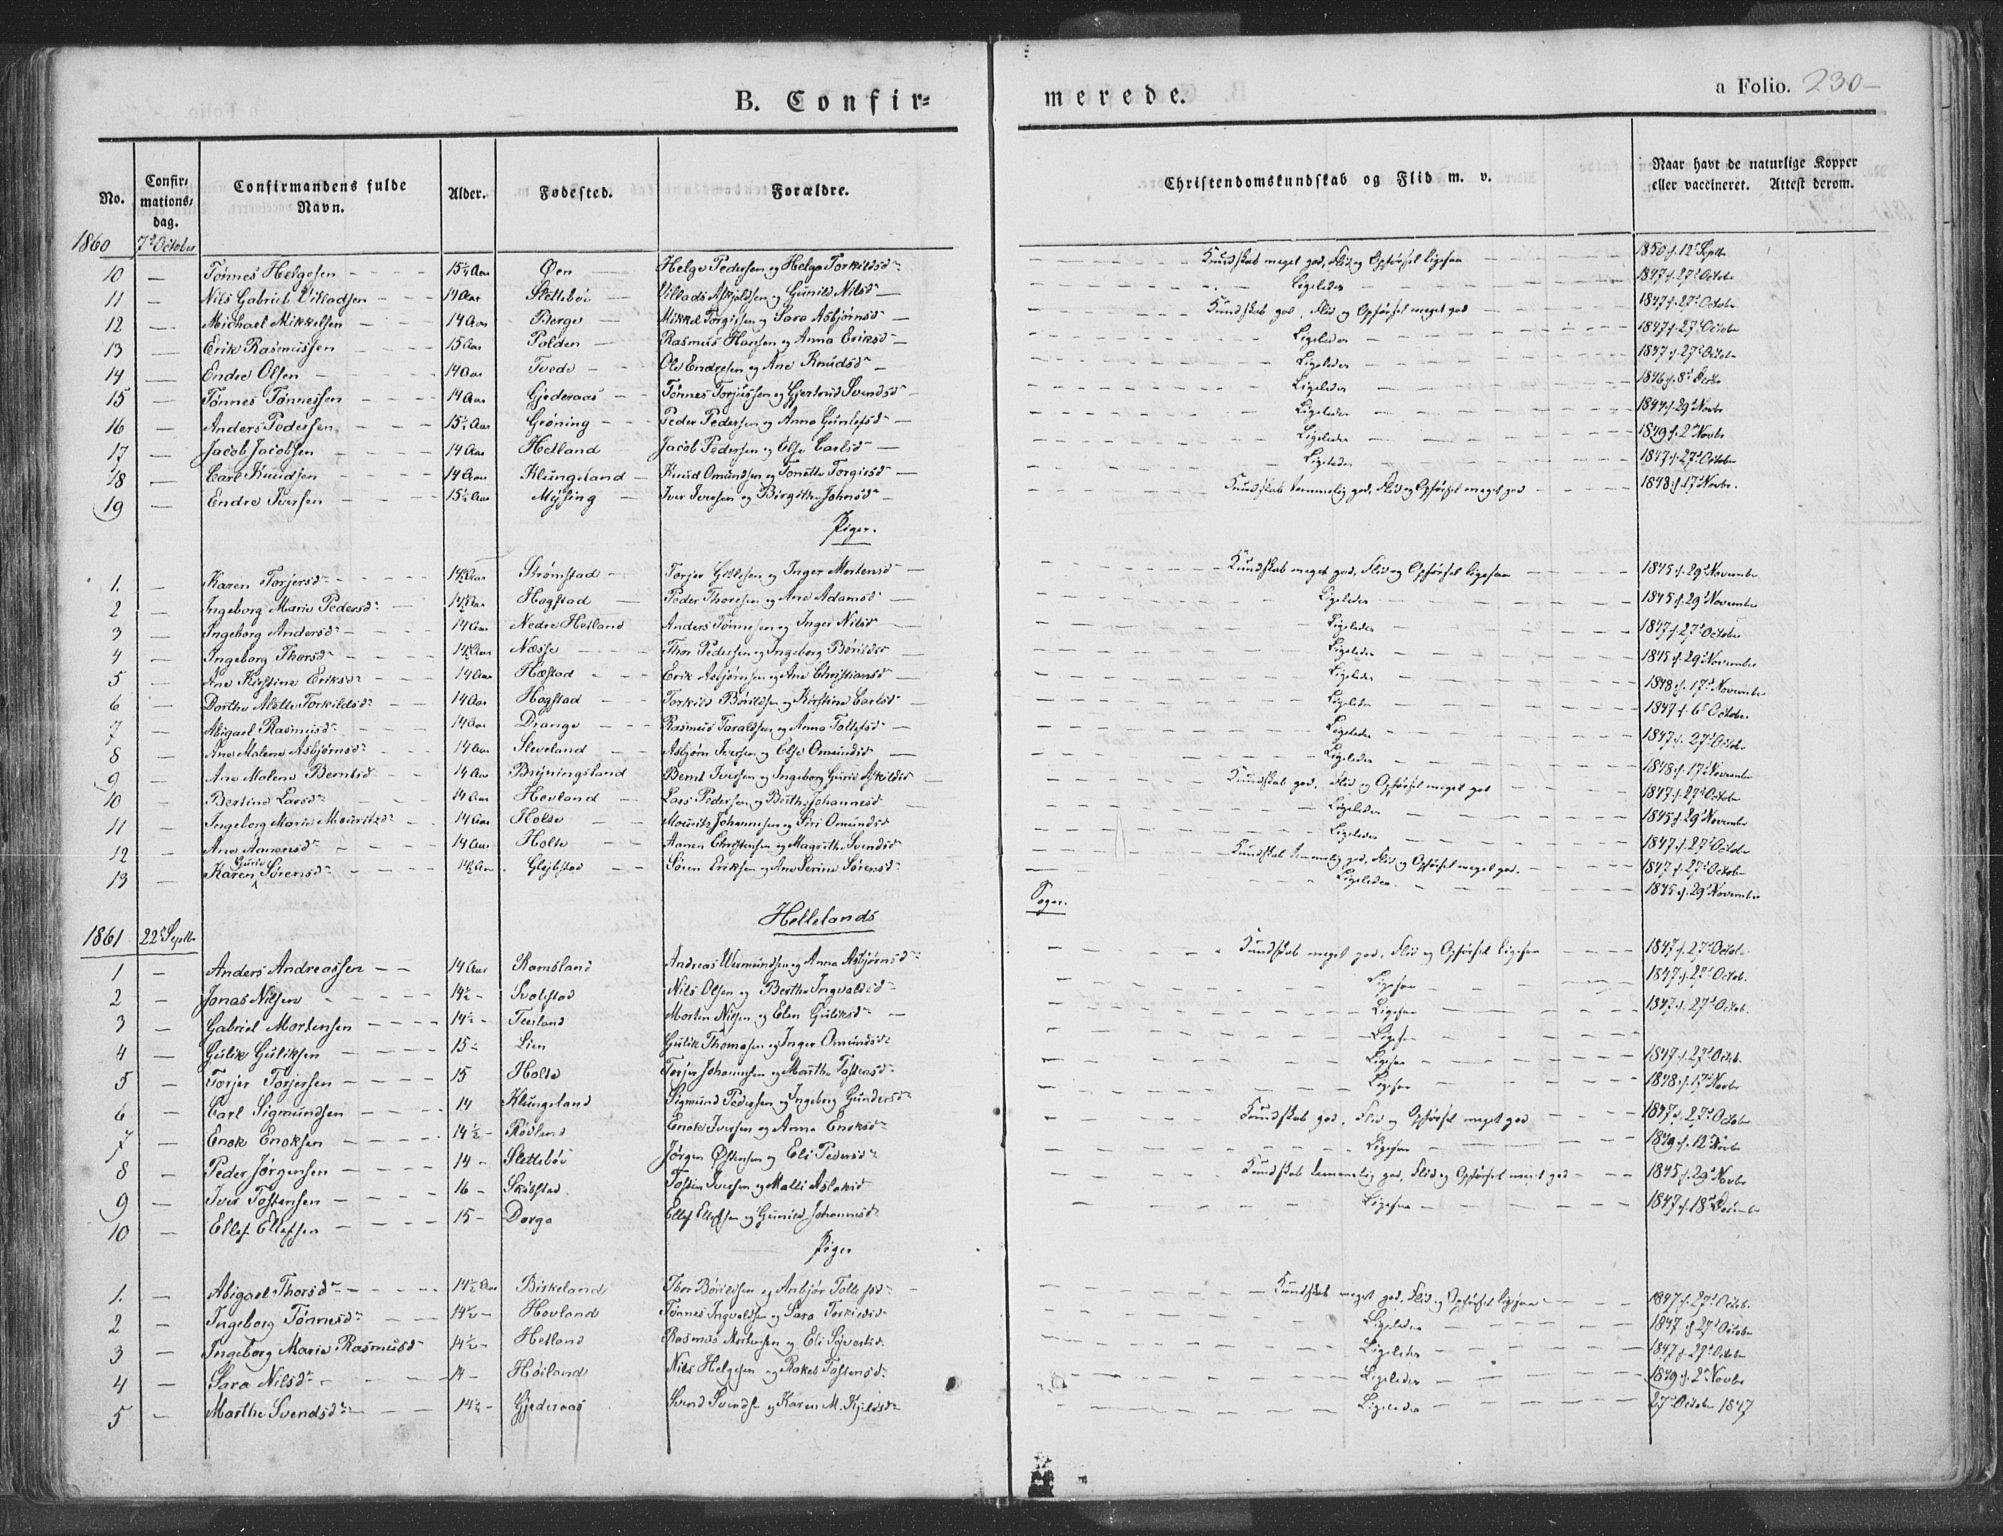 B. Confir=
merede.
a Folio. 230-
No. Confir=mations=dag. Confirmandens fulde Navn. Alder. Fødested. Forældre. Christendomskundskab og Flid m. v. Naar havt de naturlige Kopper eller vaccineret. Attest derom.
1860 7de October
10 — Tønnes Helgesen 15½ Aar Øen Helge Pedersen og Helga Torkildsdr Kundskab meget god, Flid og Opførsel ligesaa 1850 f. 12t Septbr
11 — Nils Gabriel Villadsen 14 Aar Slettebøe Villads Askjeldsen og Gunild Nilsd Ligeledes 1847 f. 27d October
12 — Michael Mikkelsen 14 Aar Berge Mikkel Torgissen og Sara Asbjørnsd Kundskab god, Flid og Opførsel meget god 1847 f. 27d October
13 — Erik Rasmussen 15 Aar Polden Rasmus Hansen og Anna Eriksd Ligeledes 1847 f. 27d October
14 — Endre Olsen 14 Aar Tvede Ole Endresen og Ane Knudsdr Ligeledes 1847 f. 27d Octobr
15 — Tønnes Tønnessen 14 Aar Gjederaas Tønnes Torjussen og Gjertrud Svendsd Ligeledes 1846 f. 8d Octbr
16 — Anders Pedersen 15½ Aar Grøning Peder Pedersen og Anna Gunlefsd Ligeledes 1844 f. 29d Novbr
17 — Jacob Jacobsen 14 Aar Hetland Jacob Pedersen og Else Carlsd Ligeledes 1849 f. 2d Novbr
18 — Carl Knudsen 14 Aar Klungeland Knud Omundsen og Tonette Torgersd Ligeledes 1847 f. 27d October
19 — Endre Iversen 15½ Aar Mysing Iver Iversen og Birgithe Johnsd Kundskab temmelig god, Flid og Opførsel meget god 1848 f. 17d Novbr.
Piger.
1. — Karen Torjersd 14½ Aar Strømstad Torjer Gullesen og Inger Mortensd Kundskab meget god, Flid og Opførsel ligesaa 1845 f. 29d November
2 — Ingeborg Marie Pedersdr 14½ Aar Hogstad Peder Thorsen og Ane Adamsd Ligeledes 1845 f. 29d November
3 — Ingeborg Andersd 14 Aar Nedre Hetland Anders Tønnesen og Inger Nilsd Ligeledes 1847 f. 27d October
4 — Ingeborg Thorsd 14½ Aar Næsse Thor Pedersen og Ingeborg Børildsd Ligeledes 1845 f. 29d November
5 — Ane Kirstine Eriksdr 14 Aar Hæstad Erik Asbjørnsen og Ane Christiansd Ligeledes 1848 f. 17d November
6 — Dorthe Alette Torkildsdr 14 Aar Hogstad Torkild Børildsen og Kirstine Carlsd Ligeledes 1847 f. 6t October
7 — Abigael Rasmusdr 14 Aar Drange Rasmus Taraldsen og Anna Tollefsd Ligeledes 1847 f. 27d Octobr
8 — Ane Malene Asbjørnsdr 14 Aar Sleveland Asbjørn Iversen og Else Omundsd Ligeledes 1848 f. 17d November
9 — Ane Malene Berntsd 14 Aar Bryningsland Bernt Iversen og Ingeborg Gurie Askildsd Kundskab god, Flid og Opførsel meget god 1847 f. 27d October
10 — Bertine Larsdr 14 Aar Hovland Lars Pedersen og Berthe Johannesd Ligeledes 1845 f. 29d November
11 — Ingeborg Marie Mauritzdr 14 Aar Holte Mauritz Johannesen og Siri Omundsd Ligeledes 1847 f. 27d Octobr
12 — Ane Aanensdr 14 Aar Holte Aanen Christensen og Magrethe Svendsd Kundskab temmelig god, Flid og Opførsel meget god. 1847 f. 27d October
13 — Karen Gurie Sørensdr 14½ Aar Gløbstad Søren Eriksen og Ane Serine Sørensd Ligeledes 1845 f. 29d November
Hellelands
Sogn.
1861 22d Septbr
1 — Anders Andreassen 14 Aar Ramsland Andreas Wermundsen og Anna Asbjørnsdr Kundskab meget god, Flid og Opførsel ligesaa 1847 f. 27d Octob.
2 — Jonas Nilsen 14½ Svalestad Nils Olsen og Berthe Ingvaldsd Ligesaa 1847 f. 27d Octob.
3 — Gabriel Mortensen 14½ Teesland Morten Nilsen og Elen Guliksdr Ligesaa 1847 f. 27d Octob.
4 — Gulik Guliksen 15½ Lien Gulik Thomasen og Inger Omundsdr Ligesaa 1847 f. 27d Octob.
5 — Torjer Torjersen 15 Holte Torjer Johannesen og Marthe Tostensdr Ligesaa 1848 f. 17d Novbr
6 — Carl Sigmundsen 14 Klungeland Sigmund Pedersen og Ingeborg Gundersdr Ligesaa
7 — Enok Enoksen 14½ Røvland Enok Iversen og Anna Enoksdr Kundskab god, Flid og Opførsel meget god 1847 f. 27d October
8 — Peder Jørgensen 14 Slettebøe Jørgen Østensen og Eli Pedersdr Ligesaa 1849 f. 12t Novbr
9 — Iver Tostensen 16 Skaalstad Tosten Iversen og Malli Aslaksd Kundskab temmelig god, Flid og Opførsel meget god 1845 f. 29d Novbr
10 — Ellef Ellefsen 15 Dorga Ellef Ellefsen og Gunild Johannesdr Ligesaa 1847 f. 18d December
Piger
1. — Abigael Thorsdr 14½ Aar Birkeland Thor Børildsen og Anbjør Tollefsd Kundskab meget god, Flid og Opførsel ligesaa 1847 f. 27d Octob.
2 — Ingeborg Tønnesdr 14½ Hovland Tønnes Ingvaldsen og Sara Torkildsd Ligeledes 1847 f. 27d October
3 — Ingeborg Marie Rasmusd 14½ Hetland Rasmus Mortensen og Eli Sivertsd. Ligeledes 1847 f. 27d October
4 — Sara Nilsdr 14 Høiland Nils Helgesen og Rakel Tostensdr Ligeledes 1849 f. 2d Novbr
5 — Marthe Svendsdr 14½ Gjederaas Svend Svendsen og Karen M. Kjeldsdr Ligeledes 27d October 1847